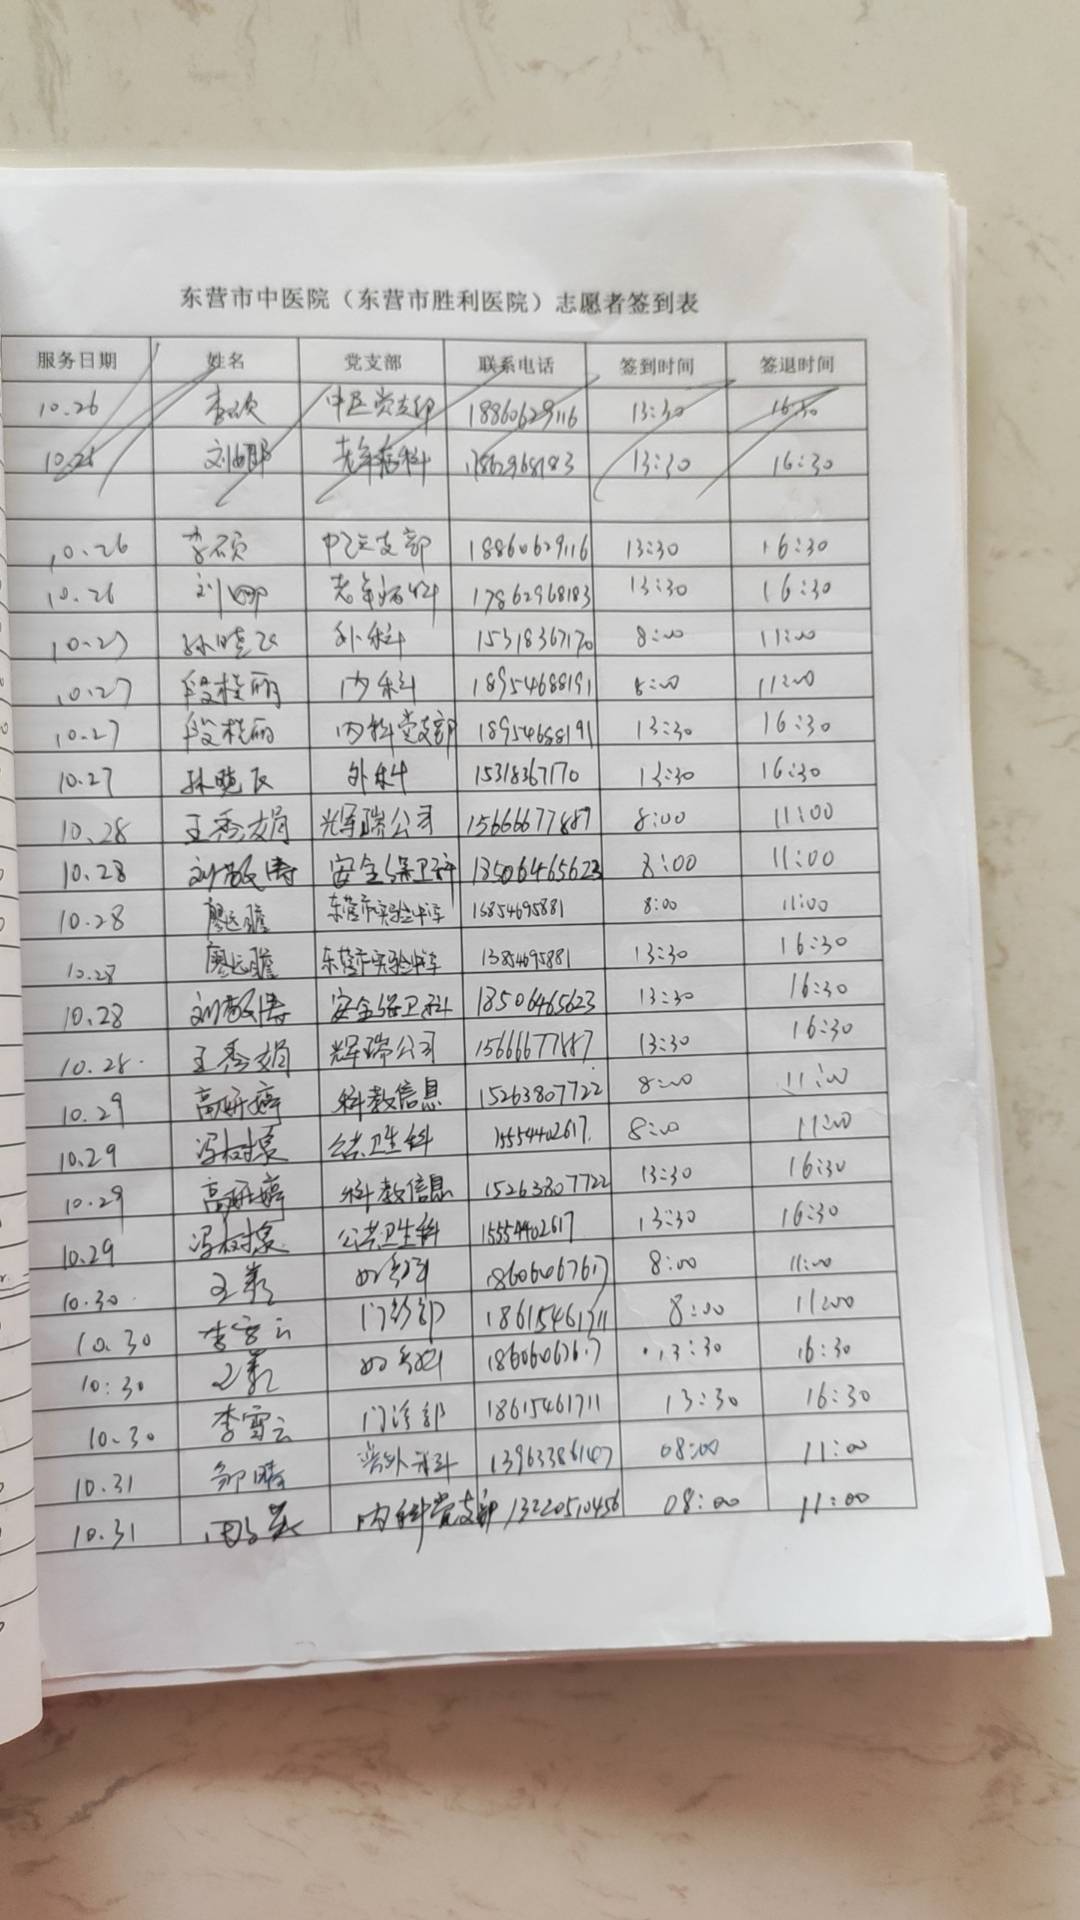 东营市中医院（东营市胜利医院）志愿者签到表
服务日期 姓名 党支部 联系电话 签到时间 签退时间
10.26 李硕 中医党支部 18860629116 13:30 16:30
10.26 刘娜 老年病科 17862968183 13:30 16:30
10.26 李硕 中医支部 18860629116 13:30 16:30
10.26 刘娜 老年病科 17862968183 13:30 16:30
10.27 孙晓飞 外科 15318367170 8:00 11:00
10.27 段桂丽 内科 18954688191 8:00 11:00
10.27 段桂丽 内科党支部 18954688191 13:30 16:30
10.27 孙晓飞 外科 15318367170 13:30 16:30
10.28 王秀娟 辉瑞公司 15666677887 8:00 11:00
10.28 刘敬涛 安全保卫科 18506465623 8:00 11:00
10.28 廖远瞻 东营市实验中学 8:00 11:00
10.28 廖远瞻 东营市实验中学 13854695881 13:30 16:30
10.28 刘敬涛 安全保卫科 18506465623 13:30 16:30
10.28. 王秀娟 辉瑞公司 15666677887 13:30 16:30
10.29 高妍婷 科教信息 15263807722 8:00 11:00
10.29 冯树 公共卫生科 15554402617. 8:00 11:00
10.29 高妍婷 科教信息 15263807722 13:30 16:30
10.29 冯树 公共卫生科 15554402617 13:30 16:30
10.30. 王 8:00 11:00
10.30 李雪云 门诊部 18615461711 8:00 11:00
10:30 王 13:30 16:30
10.30 李雪云 门诊部 18615461711 13:30 16:30
10.31 邹 普外科 13963386147 08:00 11:00
10.31 内科党支部 13220510456 08:00 11:00